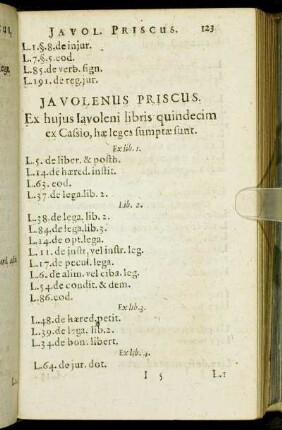 JAVOL. PRISCUS. 123
L.1.§.8.de injur.
L.7.§.5.eod.
L.85.de verb. sign.
L.191. de reg.jur.
JAVOLENUS PRISCUS.
Ex hujus Iavoleni libris quindecim
ex Cassio, hæ leges sumptæ sunt.
Ex lib. 1.
L.5. de liber. & posth.
L.14.de hæred. instit.
L.63. eod.
L.37.de lega.lib. 2.
Lib. 2.
L.38.de lega. lib. 2.
L.84.de lega.lib.3.
L.14.de opt.lega.
L.11. de instr. vel instr. leg.
L.17.de pecul. lega.
L.6. de alim. vel ciba. leg.
L.54.de condit. & dem.
L.86.eod.
Ex lib.3.
L.48.de hæred.petit.
L.39.de lega. lib.2.
L.34.de bon. libert.
Ex lib. 4.
L.64. de jur. dot.
I 5 L.1